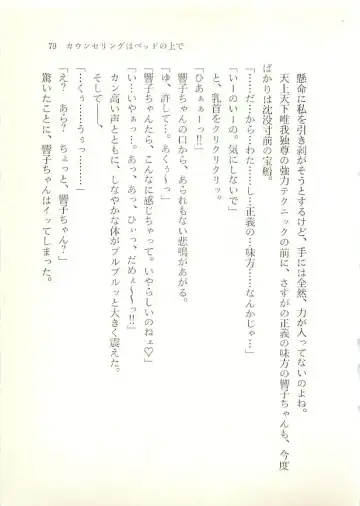 79 カウンセリングはベッドの上で
懸命に私を引き剥がそうとするけど、手には全然、力が入ってないのよね。
天上天下唯我独尊の強力テクニックの前に、さすがの正義の味方の響子ちゃんも、今度
ばかりは沈没寸前の宝船。
「……だ……から……わた……し……正義の……味方……なんかじゃ……」
「いーのいーの。気にしないで」
と、乳首をクリクリクリッ。
「ひあぁぁーっ!!」
響子ちゃんの口から、あられもない悲鳴があがる。
「ゆ、許して……。あくぅーっ」
「響子ちゃんたら、こんなに感じちゃって。いやらしいのねェ♡」
「いっ……いやぁっ…。あっ、あっ、ひっ、だめぇ〜〜っ!!」
カン高い声とともに、しなやかな体がブルブルッと大きく震えた。
そして――
「く……くっ……うぅっ…………」
「え？ あら？ ちょっと、響子ちゃん？」
驚いたことに、響子ちゃんはイッてしまった。